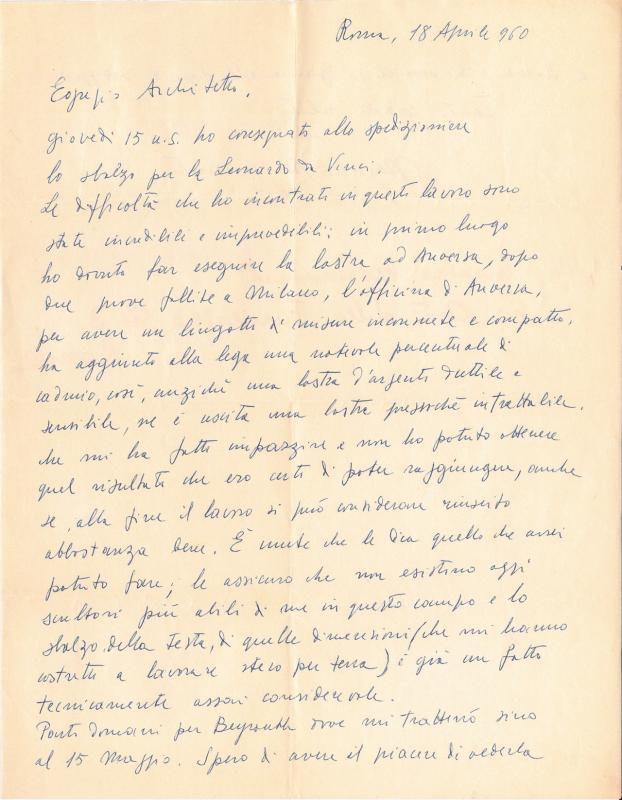 Roma, 18 Aprile 960
Egregio Architetto,
giovedì 15 u.s. ho consegnato allo spedizioniere
lo sbalzo per la Leonardo da Vinci.
Le difficoltà che ho incontrato in questo lavoro sono
state incredibili e imprevedibili: in primo luogo
ho dovuto far eseguire la lastra ad Anversa, dopo
due prove fallite a Milano, l'officina di Anversa,
per avere un lingotto di misure inconsuete e compatto,
ha aggiunto alla lega una notevole percentuale di
cadmio, così, anzichè una lastra d'argento duttile e
sensibile, ne è uscita una lastra pressochè intrattabile,
che mi ha fatto impazzire e non ho potuto ottenere
quel risultato che ero certo di poter raggiungere, anche
se, alla fine il lavoro si può considerare riuscito
abbastanza bene. È inutile che le dica quello che avrei
potuto fare; le assicuro che non esistono oggi
scultori più abili di me in questo campo e lo
sbalzo della testa, di quelle dimensioni (che mi hanno
costretto a lavorare steso per terra) è già un fatto
tecnicamente assai considerevole.
Parto domani per Beyrouth dove mi tratterrò sino
al 15 Maggio. Spero di avere il piacere di vederla